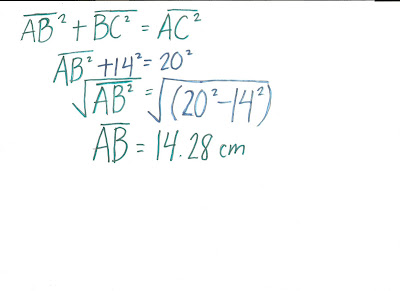 A̅B̅² + B̅C̅² = A̅C̅²
A̅B̅² + 14² = 20²
√A̅B̅² = √(20² − 14²)
A̅B̅ = 14.28 cm